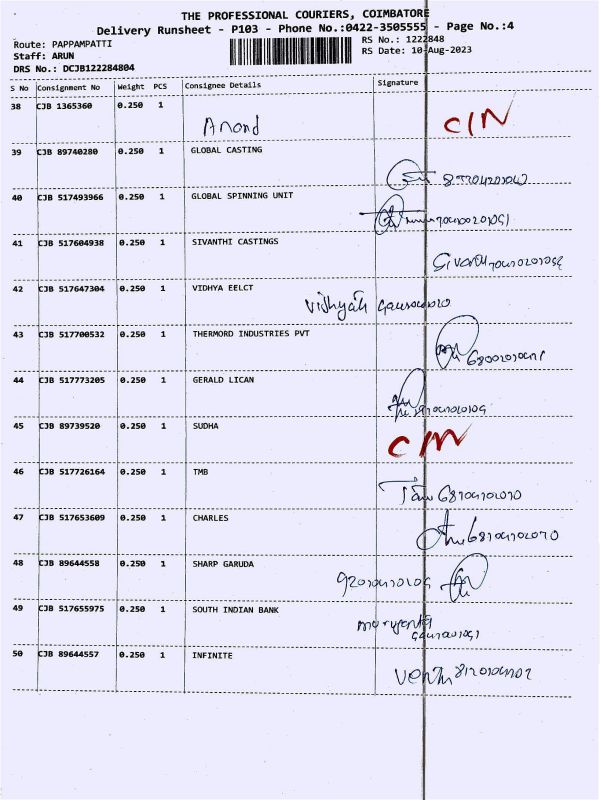 THE PROFESSIONAL COURIERS, COIMBATORE
Delivery Runsheet - P103 - Phone No.:0422-3505555 - Page No.:4
Route: PAPPAMPATTI RS No.: 1222848
Staff: ARUN RS Date: 10-Aug-2023
DRS No.: DCJB122284804
S No Consignment No Weight PCS Consignee Details Signature
38 CJB 1365360 0.250 1 Anand C/N
39 CJB 89740280 0.250 1 GLOBAL CASTING
40 CJB 517493966 0.250 1 GLOBAL SPINNING UNIT
41 CJB 517604938 0.250 1 SIVANTHI CASTINGS
42 CJB 517647304 0.250 1 VIDHYA EELCT
43 CJB 517700532 0.250 1 THERMORD INDUSTRIES PVT
44 CJB 517773205 0.250 1 GERALD LICAN
45 CJB 89739520 0.250 1 SUDHA C/N
46 CJB 517726164 0.250 1 TMB
47 CJB 517653609 0.250 1 CHARLES
48 CJB 89644558 0.250 1 SHARP GARUDA
49 CJB 517655975 0.250 1 SOUTH INDIAN BANK
50 CJB 89644557 0.250 1 INFINITE